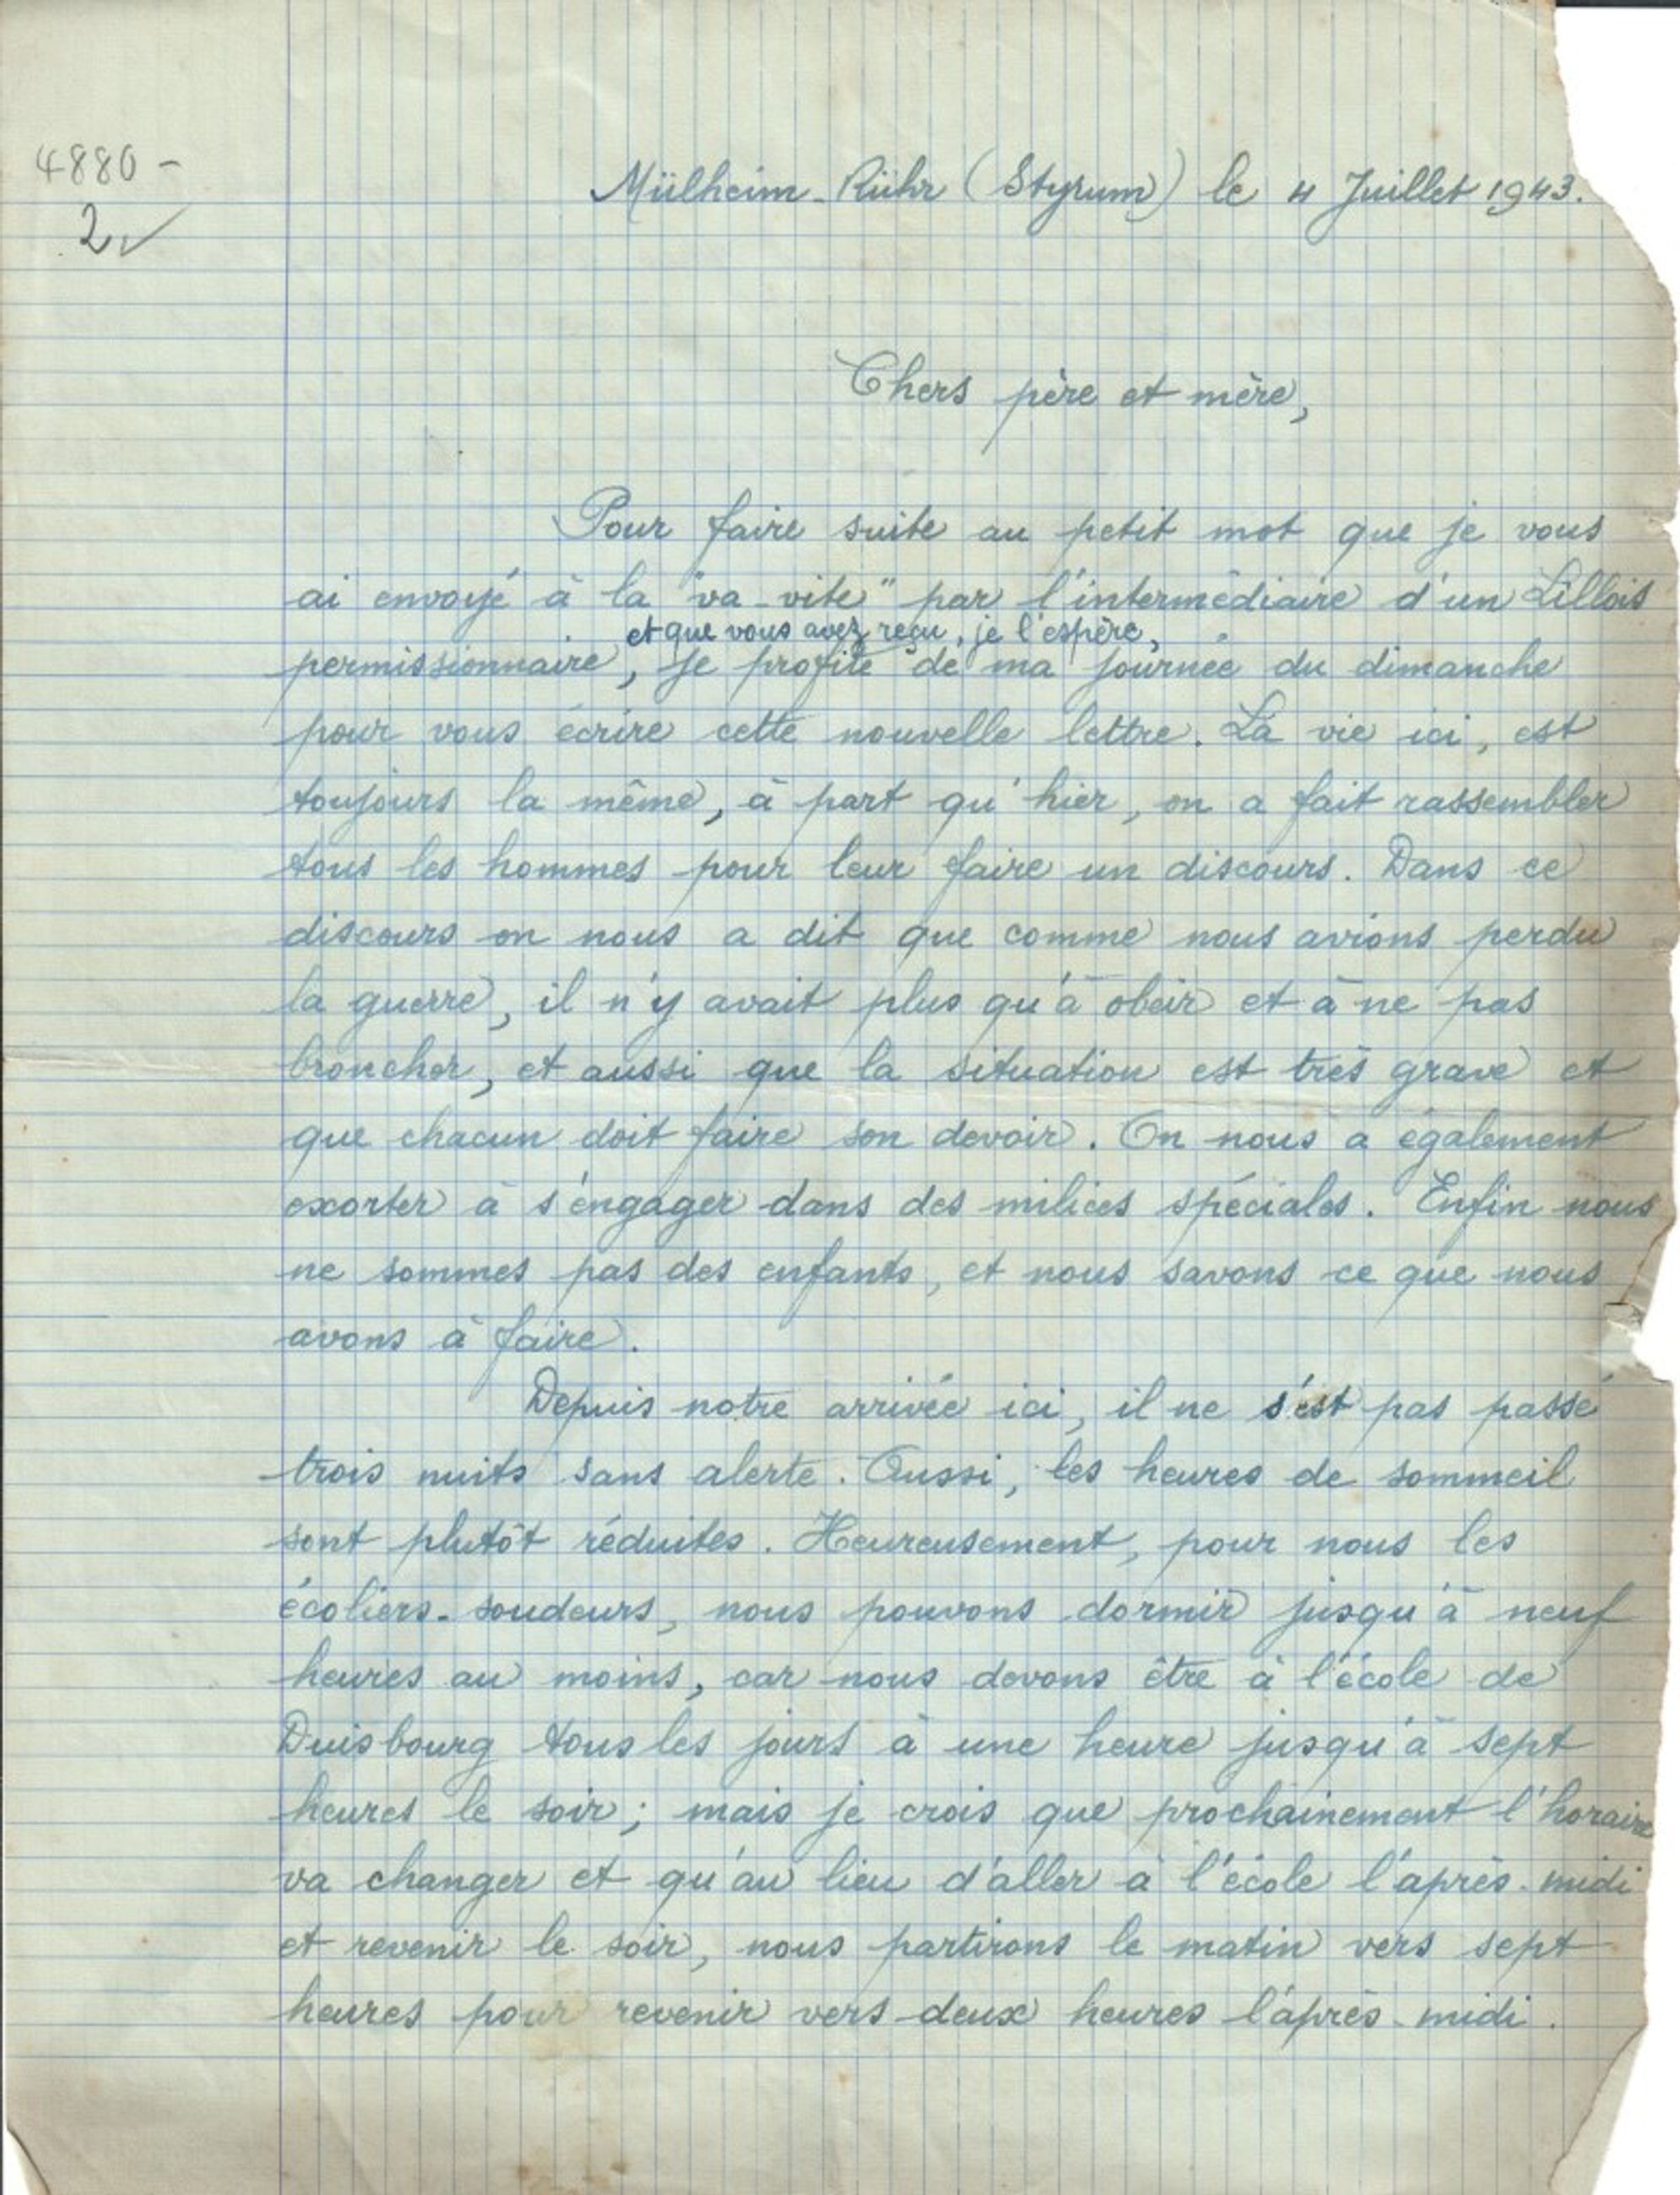 4880 -
2 ✓
Mülheim-Rühr (Styrum) le 4 Juillet 1943.
Chers père et mère,
Pour faire suite au petit mot que je vous
ai envoyé à la "va-vite" par l'intermédiaire d'un Lillois
et que vous avez reçu, je l'espère,
permissionnaire, je profite de ma journée du dimanche
pour vous écrire cette nouvelle lettre. La vie ici, est
toujours la même, à part qu'hier, on a fait rassembler
tous les hommes pour leur faire un discours. Dans ce
discours on nous a dit que comme nous avions perdu
la guerre, il n'y avait plus qu'à obéir et à ne pas
broncher, et aussi que la situation est très grave et
que chacun doit faire son devoir. On nous a également
exorter à s'engager dans des milices spéciales. Enfin nous
ne sommes pas des enfants, et nous savons ce que nous
avons à faire.
Depuis notre arrivée ici, il ne s'est pas passé
trois nuits sans alerte. Aussi, les heures de sommeil
sont plutôt réduites. Heureusement, pour nous les
écoliers-soudeurs, nous pouvons dormir jusqu'à neuf
heures au moins, car nous devons être à l'école de
Duisbourg tous les jours à une heure jusqu'à sept
heures le soir; mais je crois que prochainement l'horaire
va changer et qu'au lieu d'aller à l'école l'après-midi
et revenir le soir, nous partirons le matin vers sept
heures pour revenir vers deux heures l'après-midi.